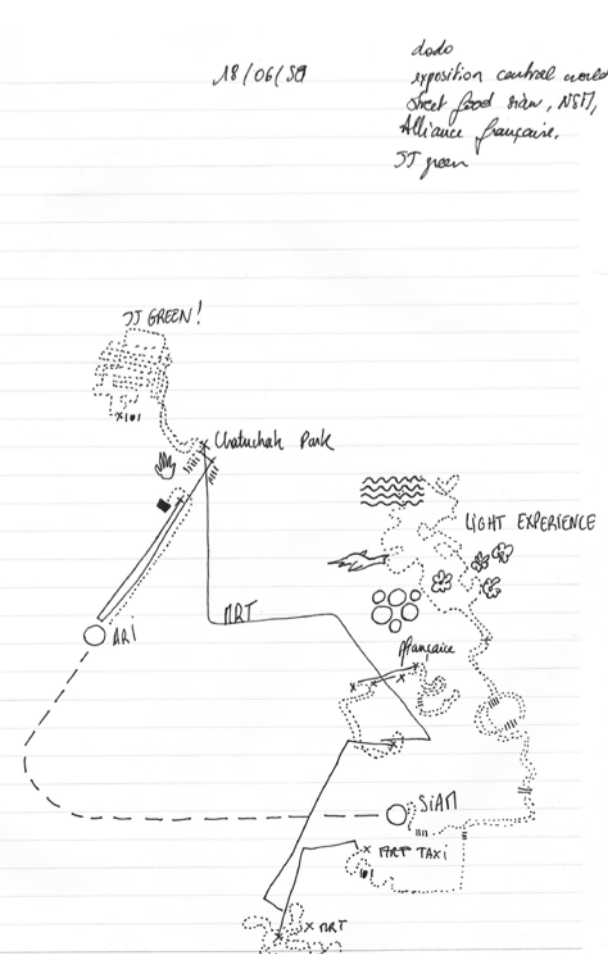 18/06/59
dodo
exposition central world
street food siam, NSM,
Alliance française.
JJ green
JJ GREEN!
Chatuchak Park
LIGHT EXPERIENCE
MRT
ARI
française
SIAM
MRT TAXI
MRT